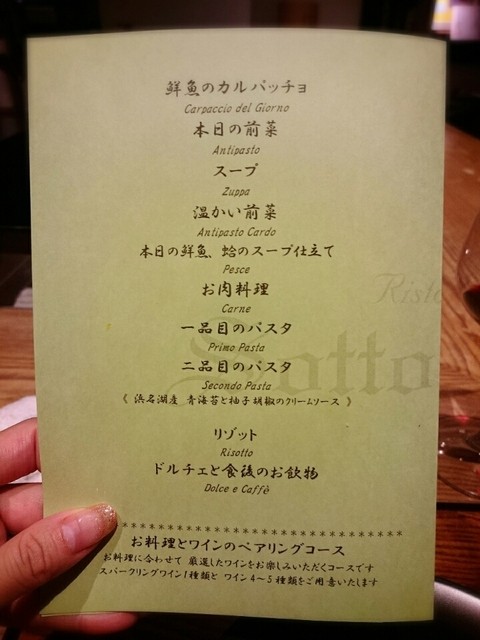 鮮魚のカルパッチョ
Carpaccio del Giorno
本日の前菜
Antipasto
スープ
Zuppa
温かい前菜
Antipasto Cardo
本日の鮮魚、蛤のスープ仕立て
Pesce
お肉料理
Carne
一品目のパスタ
Primo Pasta
二品目のパスタ
Secondo Pasta
《 浜名湖産 青海苔と柚子胡椒のクリームソース 》
リゾット
Risotto
ドルチェと食後のお飲物
Dolce e Caffè
お料理とワインのペアリングコース
お料理に合わせて 厳選したワインをお楽しみいただくコースです
スパークリングワイン1種類と ワイン4〜5種類をご用意いたします